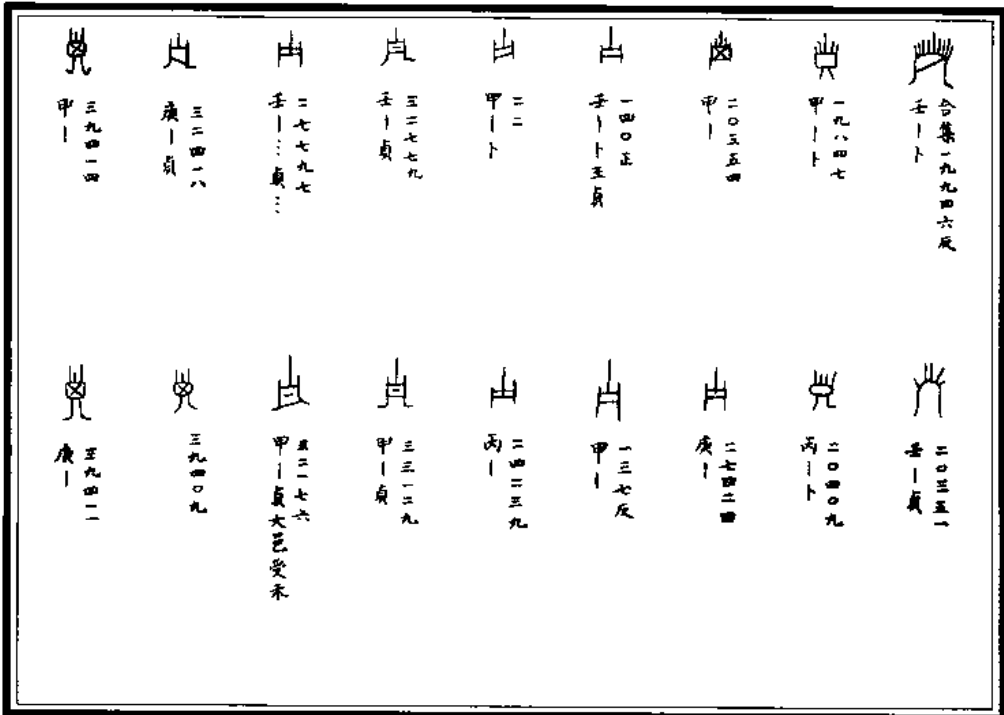 合集一九九四六反
壬—卜
一九八四七
甲—卜
二〇三五四
甲—
一四〇正
壬—卜貞
二二
甲—卜
三二七七九
壬—貞
二七七九七
壬—…貞…
三二四一八
庚—貞
三九四一四
甲—
二〇三五一
壬—貞
二〇四〇九
丙—卜
二七四二四
庚—
一三七反
甲—
二四二三九
丙—
三三一二九
甲—貞
三二一七六
甲—貞大邑受禾
三九四〇九
庚—